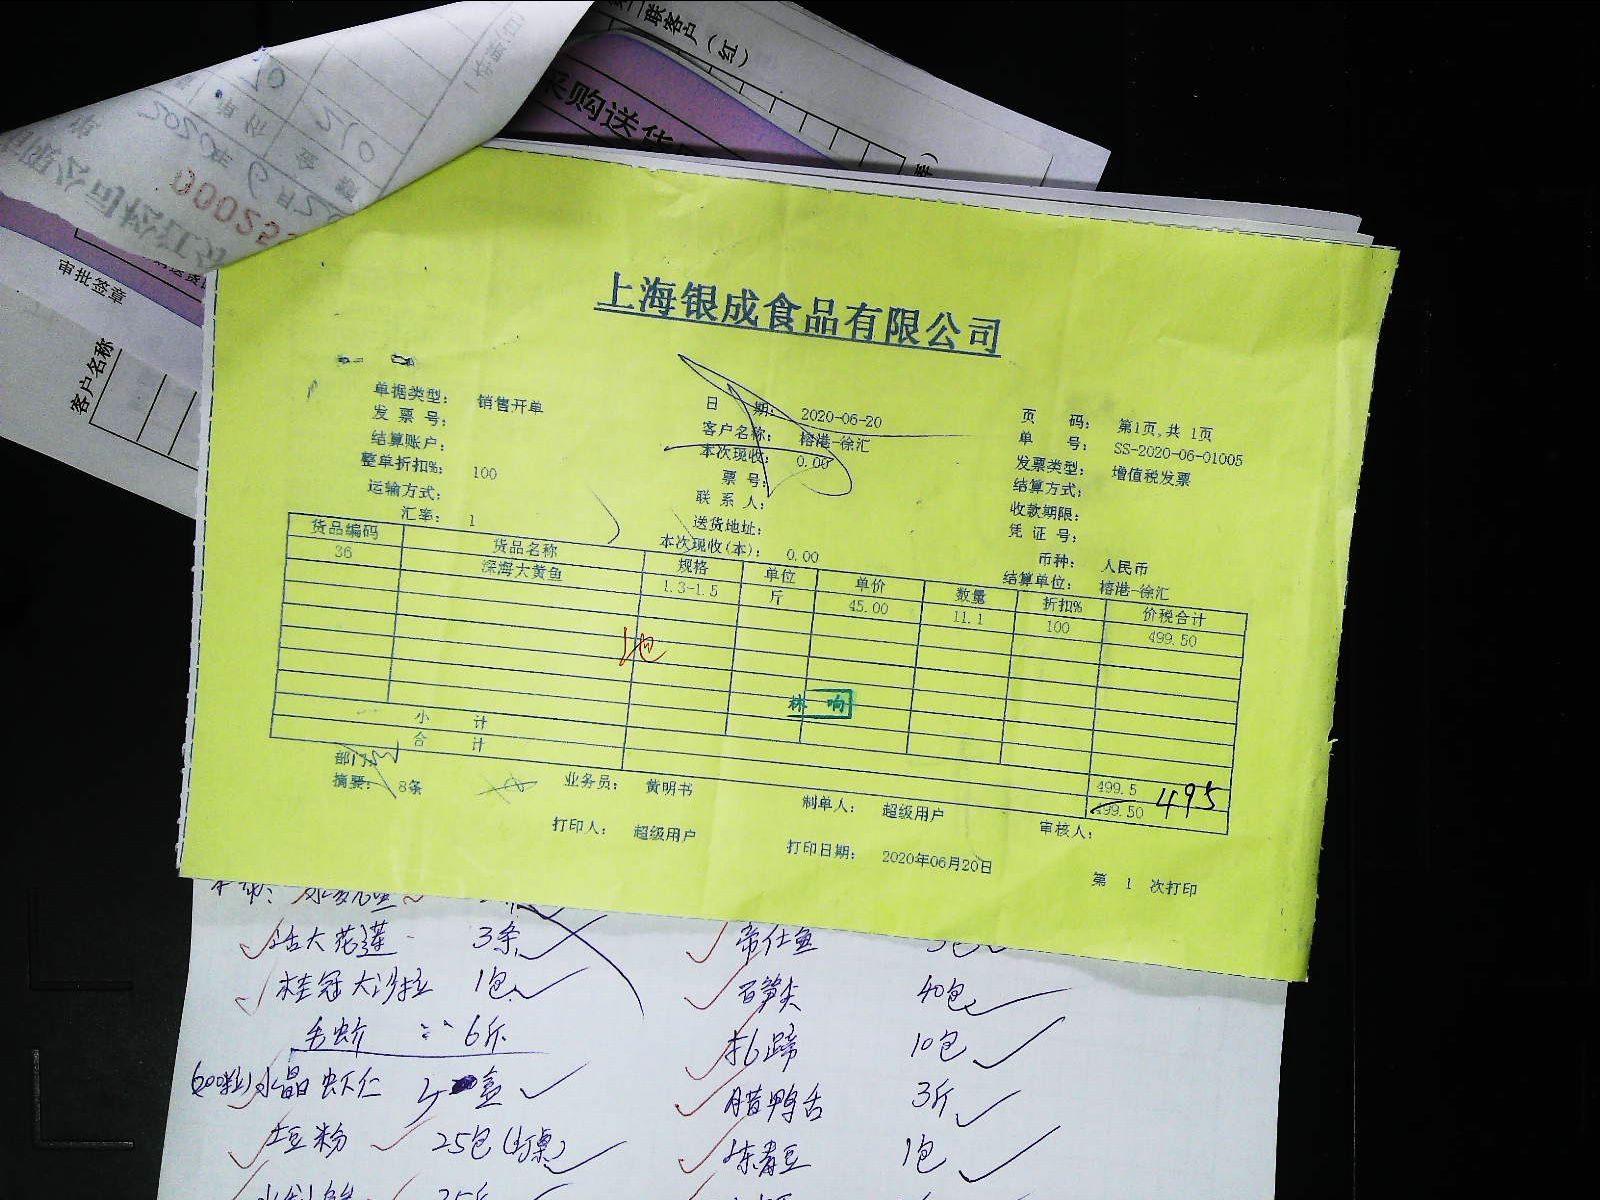 联客户（红）
采购送货
00025
审批签章
客户名称
上海银成食品有限公司
单据类型： 销售开单 日 期： 2020-06-20 页 码： 第1页,共 1页
发 票 号： 客户名称： 榕港-徐汇 单 号： SS-2020-06-01005
结算账户： 本次现收： 0.00 发票类型： 增值税发票
整单折扣%： 100 票 号： 结算方式：
运输方式： 联 系 人： 收款期限：
汇率： 1 送货地址： 凭 证 号：
本次现收(本)： 0.00 币种： 人民币
结算单位： 榕港-徐汇
货品编码 货品名称 规格 单位 单价 数量 折扣% 价税合计
36 深海大黄鱼 1.3-1.5 斤 45.00 11.1 100 499.50
林 响
小 计 499.5
合 计 499.50 495
部门
摘要： 8条 业务员： 黄明书 制单人： 超级用户 审核人：
打印人： 超级用户 打印日期： 2020年06月20日 第 1 次打印
活大花莲 3条
桂冠大沙拉 1包 百笋尖 40包
6斤 扎蹄 10包
水晶虾仁 盒 腊鸭舌 3斤
土豆粉 25包 冻青豆 1包